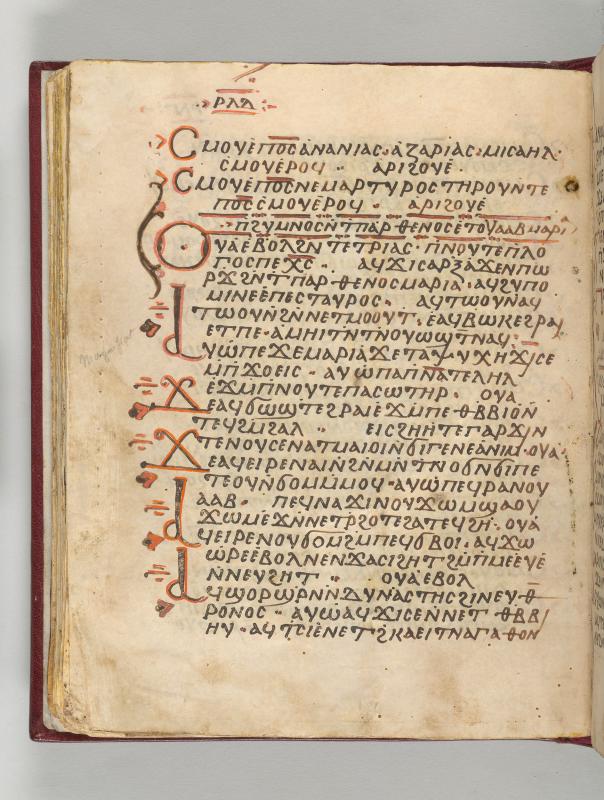 ⲣⲗⲇ
ⲥⲙⲟⲩⲉ̇ⲡⲟ̅ⲥ̅ⲁⲛⲁⲛⲓⲁⲥ· ⲁⲍⲁⲣⲓⲁⲥ· ⲙⲓⲥⲁⲏⲗ·
ⲥⲙⲟⲩⲉ̇ⲣⲟϥ ·· ⲁⲣⲓϩⲟⲩⲉ̇
ⲥⲙⲟⲩⲉ̇ⲡⲟ̅ⲥ̅ⲛⲉⲙⲁⲣⲧⲩⲣⲟⲥⲧⲏⲣⲟⲩⲛ̇ⲧⲉ
ⲡⲟ̅ⲥ̅ⲥⲙⲟⲩⲉ̇ⲣⲟϥ ⲁⲣⲓϩⲟⲩⲉ̇
ⲡϩⲩⲙⲛⲟⲥⲛ̇ⲧⲡⲁⲣⲑⲉⲛⲟⲥⲉⲧⲟⲩⲁⲁⲃⲙⲁⲣⲓⲁ
ⲟⲩⲁⲉ̇ⲃⲟⲗϩⲛ̇ⲧⲉⲧⲣⲓⲁⲥ· ⲡⲛⲟⲩⲧⲉⲡⲗⲟ
ⲅⲟⲥⲡⲉⲭ̅ⲥ̅ ·· ⲁϥϫⲓⲥⲁⲣⲝⲁ̇ϫⲉⲛⲡⲱ
ⲣϫϩⲛ̇ⲧⲡⲁⲣⲑⲉⲛⲟⲥⲙⲁⲣⲓⲁ· ⲁϥϩⲩⲡⲟ
ⲙⲓⲛⲉⲉ̇ⲡⲉⲥⲧⲁⲩⲣⲟⲥ· ⲁϥⲧⲱⲟⲩⲛⲁϥ
ⲧⲱⲟⲩⲛ̇ϩⲛ̇ⲛⲉⲧⲙⲟⲟⲩⲧ· ⲉ̇ⲁϥⲃⲱⲕⲉϩⲣⲁⲓ
ⲉⲧⲡⲉ· ⲁⲙⲏⲓⲧⲛ̇ⲧⲛ̇ⲟⲩⲱϣⲧⲛⲁϥ·
ⲗⲩⲱ̇ⲡⲉϫⲉⲙⲁⲣⲓⲁ̇ϫⲉⲧⲁⲯⲩⲭⲏϫⲓⲥⲉ
ⲙ̇ⲡϫⲟⲉⲓⲥ· ⲁⲩⲱ̇ⲡⲁⲡ̅ⲛ̅ⲁ̅ⲧⲉⲗⲏⲗ
ⲉ̇ϫⲙ̇ⲡⲛⲟⲩⲧⲉⲡⲁⲥⲱⲧⲏⲣ· ⲟⲩⲁ
ϫⲉⲁϥϭⲱϣⲧⲉϩⲣⲁⲓⲉ̇ϫⲙ̇ⲡⲉⲑⲃⲃⲓⲟ̇ⲛ̇
ⲧⲉϥϩⲙ̇ϩⲁⲗ ⲉⲓⲥϩⲏⲏⲧⲉⲅⲁⲣϫⲓⲛ
ϫⲧⲉⲛⲟⲩⲥⲉⲛⲁⲧⲙⲁⲓⲟⲓ̇ⲛ̇ϭⲓⲅⲉⲛⲉⲁ̇ⲛⲓⲙ· ⲟⲩⲁ·
ϫⲉⲁϥⲉⲓⲣⲉⲛⲁⲓ̇ⲛ̇ϩⲛ̇ⲙⲛ̇ⲧⲛⲟϭⲛ̇ϭⲓⲡⲉ
ⲧⲉⲟⲩⲛ̇ϭⲟⲙⲙ̇ⲙⲟϥ· ⲁⲩⲱ̇ⲡⲉϥⲣⲁⲛⲟⲩ
ⲁⲁⲃ· ⲡⲉϥⲛⲁϫⲓⲛⲟⲩϫⲱⲙϣⲁⲟⲩ
ϫⲱⲙⲉ̇ϫⲛ̇ⲛⲉⲧⲣ̇ϩⲟⲧⲉϩⲁⲧⲉϥϩⲏ· ⲟⲩⲁ̇
ⲗϥⲉⲓⲣⲉⲛⲟⲩϭⲟⲙϩⲙ̇ⲡⲉϥϭⲃⲟⲓ̇· ⲁϥϫⲱ
ⲱⲣⲉⲉ̇ⲃⲟⲗⲛⲉⲛϫⲁⲥⲓϩⲏⲧϩⲙ̇ⲡⲙⲉⲉⲩⲉ̇
ⲛ̇ⲛⲉⲩϩⲏⲧ ·· ⲟⲩⲁⲉ̇ⲃⲟⲗ
ⲗϥϣⲟⲣϣⲣ̇ⲛ̇ⲇⲩⲛⲁⲥⲧⲏⲥϩⲓⲛⲉⲩⲑ
ⲣⲟⲛⲟⲥ· ⲁⲩⲱⲁϥϫⲓⲥⲉⲛ̇ⲛⲉⲧⲑⲃⲃⲓ
ⲏⲩ· ⲁϥⲧⲥⲓⲉ̇ⲛⲉⲧϩⲕⲁⲉⲓⲧⲛⲁⲅⲁⲑⲟⲛ